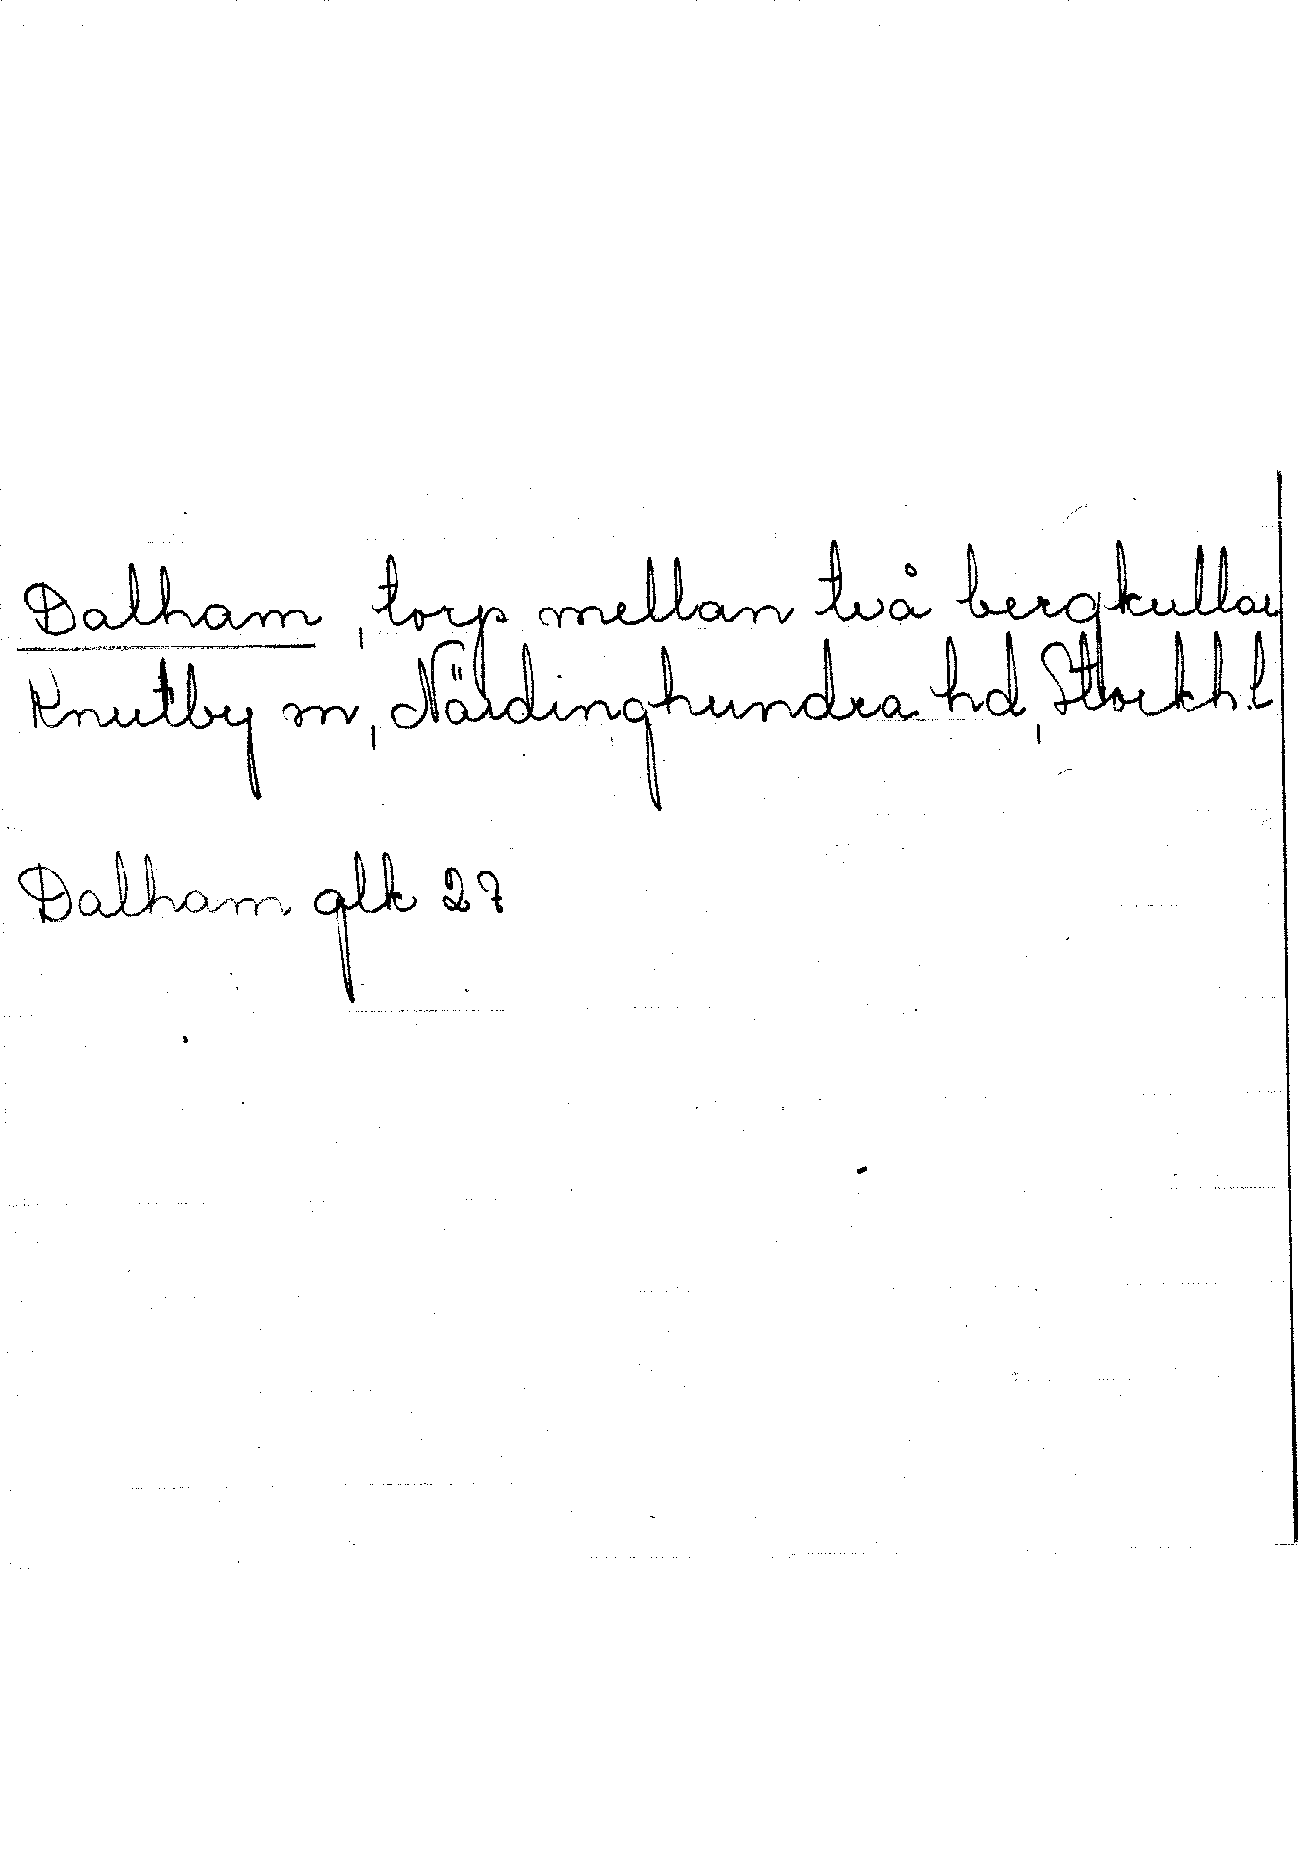 Dalham, torp mellan två bergkullar
Knutby sn, Närdinghundra hd, Stockh.l
Dalham glk 27